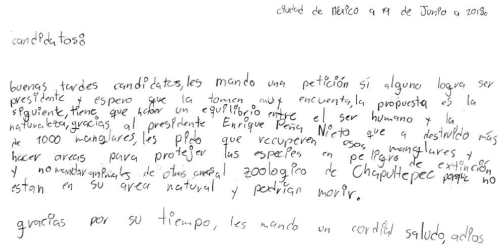 ciudad de México a 19 de Junio a 2018.
candidatos:
buenas tardes candidatos, les mando una petición si alguno logra ser
presidente y espero que la tomen muy encuenta, la propuesta es la
siguiente, tiene que haber un equilibrio entre el ser humano y la
naturaleza, gracias al presidente Enrique Peña Nieto que a destruido más
de 1000 manglares, les pido que recuperen esos manglares y
hacer areas para protejer las especies en peligro de extinción
y no mandar animales de otras areas al zoologico de Chapultepec porque no
estan en su area natural y podrian morir.
gracias por su tiempo, les mando un cordial saludo, adios